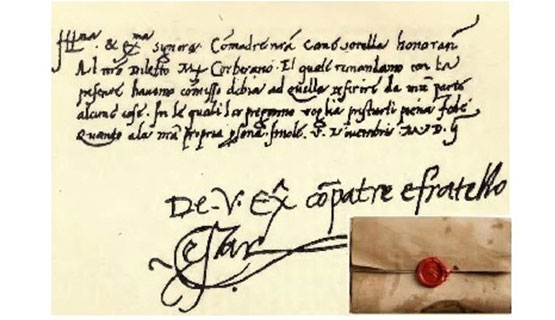 Ill^ma & Ex^ma Signora Comadre nr̃a come sorella honoran̄
Al Diletto Corberano. El quale remandamo con la
presente havemo comisso debia ad quella referire da nr̃a parte
alcune cose. In le quali la pregamo voglia prestarli piena fede
Quanto ala nr̃a propria p̱sona. Imole. V. Novembris. M. D. ij
De. V. Ex̃ cõpatre e fratello
Cesar